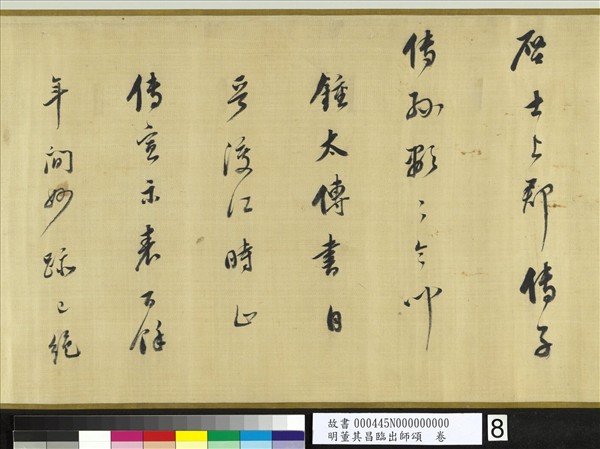 啓土上郡傳子
傳孫顯〻令問
鍾太傅書自
晉渡江時止
傳宣示表百餘
年間妙跡已絕
故書 000445N000000000
明董其昌臨出師頌 卷
8